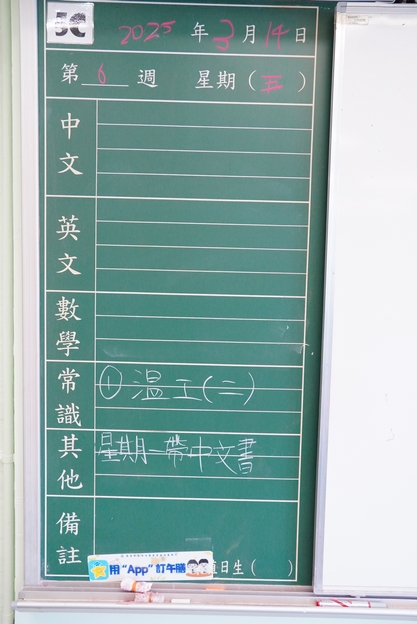 5C
2025 年 3 月 14 日
第 6 週 星期（五）
中文
英文
數學
常識 ① 温工(二)
其他 星期一帶中文書
備註
用"App"訂午膳
值日生（ ）